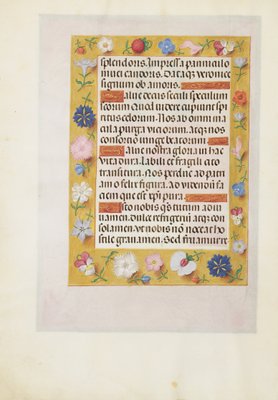 splendoris. Impressa panniculo
nivei candoris. Dataq; veronice
signum ob amoris.
Salve decus seculi speculum
sctorum Quod videre cupiunt spi
ritus celorum. Nos ab omni ma
cula purga vitiorum. Atq; nos
consortio iunge beatorum
Salve nostra gloria in hac
vita dura. Labili et fragili cito
transitura. Nos perduc ad patri
am o felix figura. Ad videndū fa
ciem que est xpi pura.
Esto nobis qs tutum adiu
vamen. dulce refrigeriū atq; con
solamen. vt nobis nō noceat ho
stile gravamen. Sed fruamur